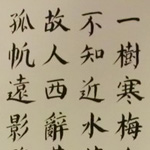 一樹寒梅
不知近水
故人西辭
孤帆遠影